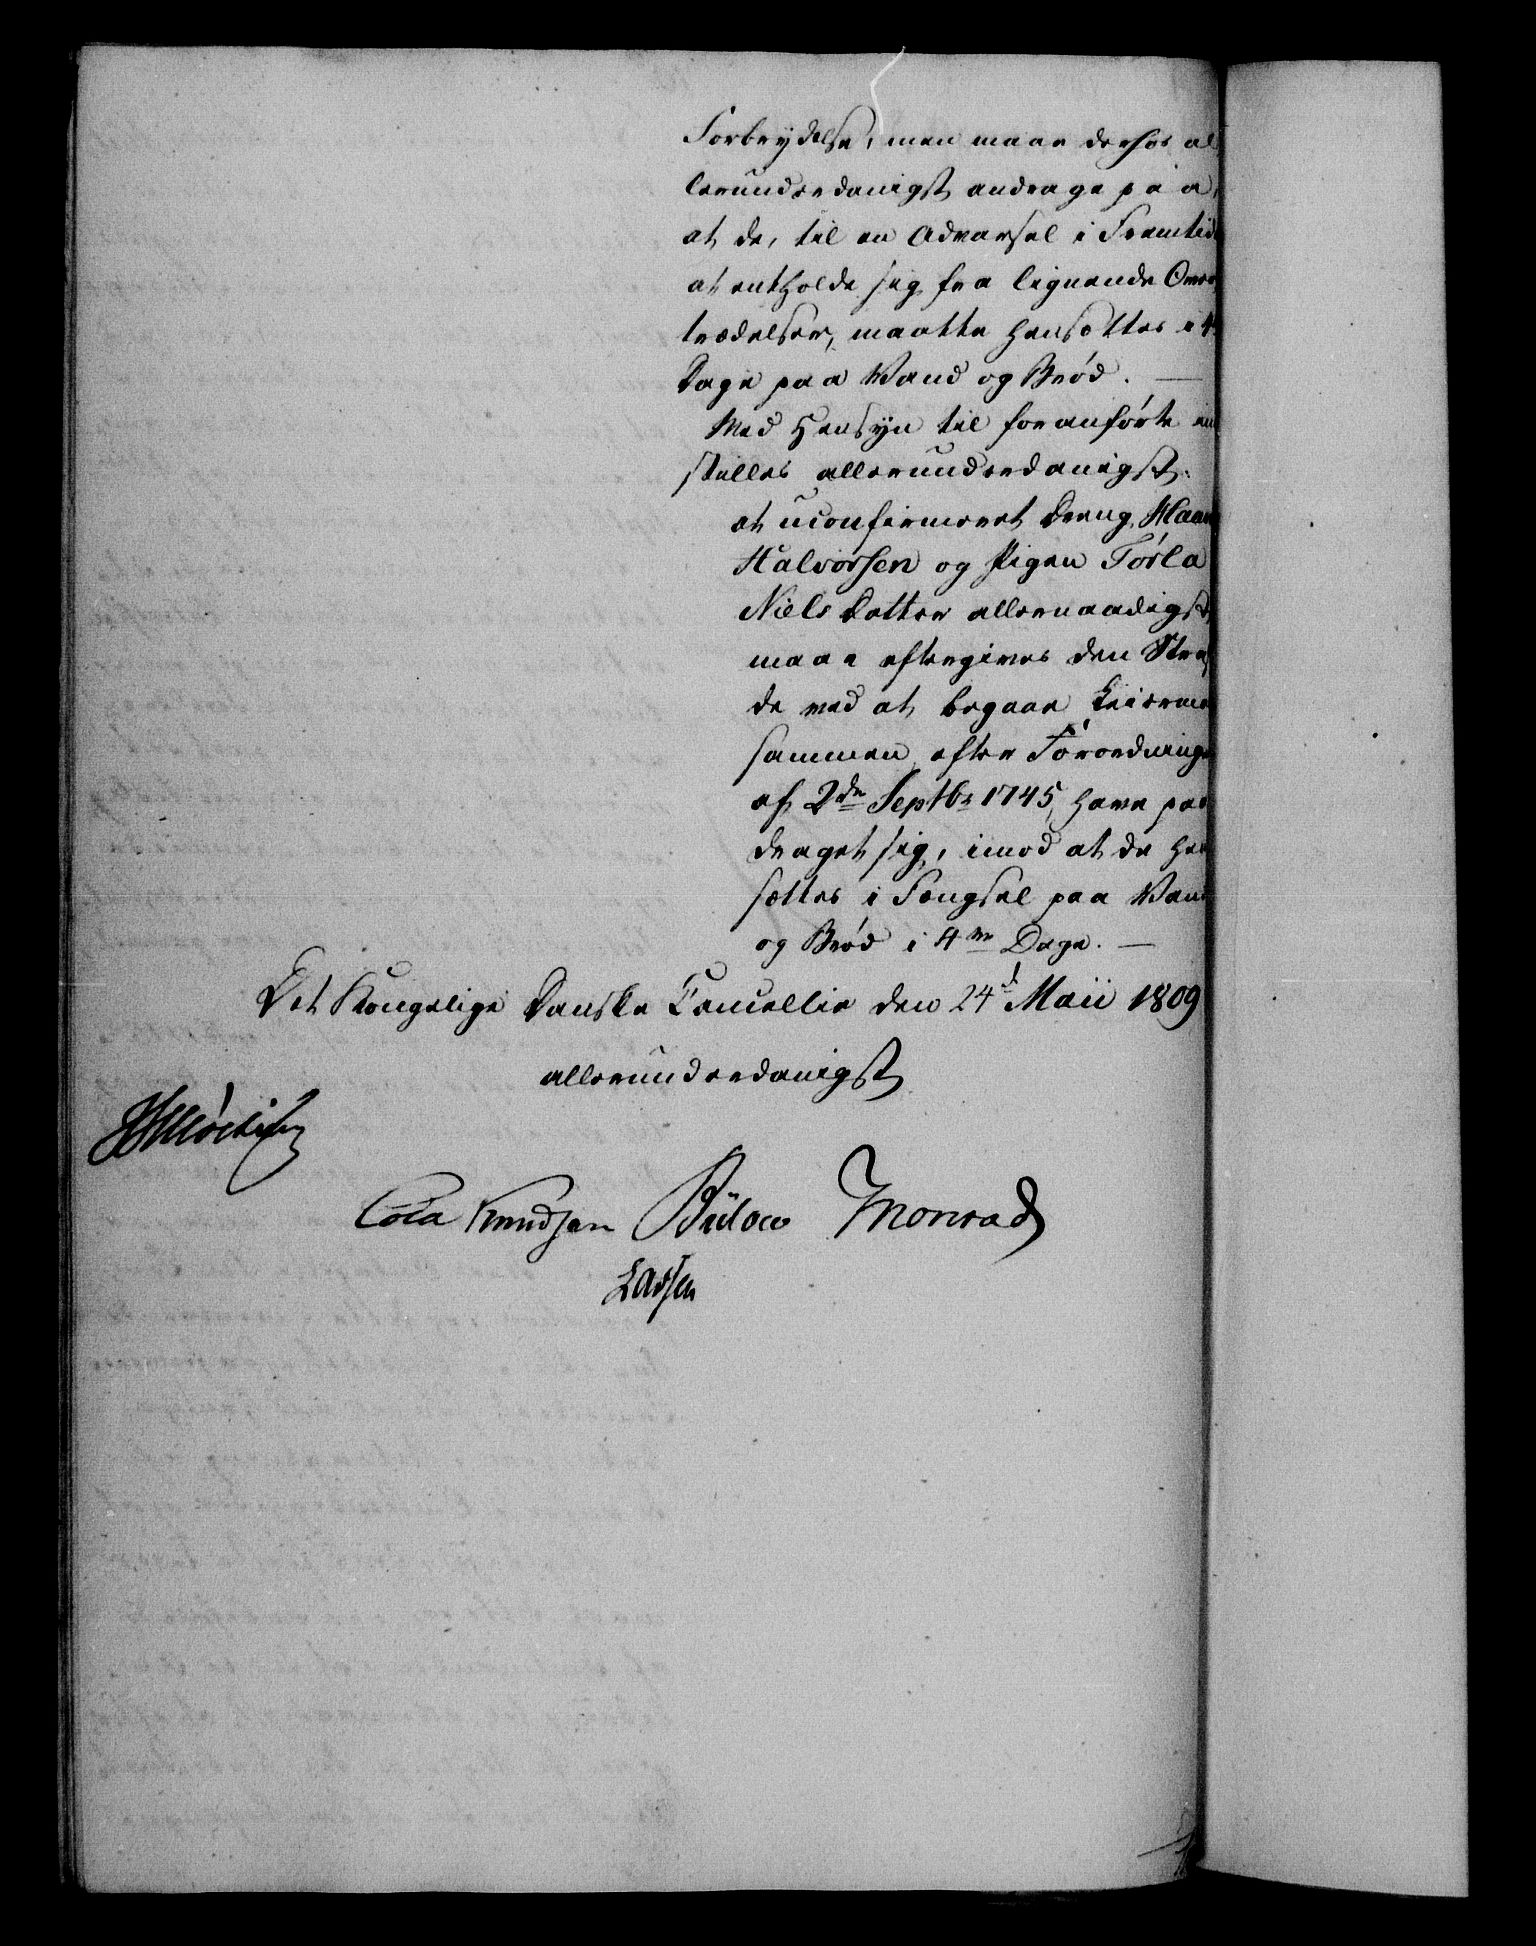 Forbrydelse, men maae derhos al
lerunderdanigst andrage paa,
at de, til en Advarsel i Fremtid
at entholde sig fra lignende Over
trædelser, maatte hensættes i 4
Dage paa Vand og Brød. —
Med Hensyn til foranførte ind
stilles allerunderdanigst:
at uconfirmeret Dreng
Halvorsen og Pigen Torla
Niels Datter allernaadigst
maae eftergives den Straf
de ved at begaae Leierma
sammen, efter Forordninge
af 2den Septbr 1745, have paa
draget sig, imod at de hen
sættes i Fængsel paa Vand
og Brød i 4re Dage. —
Det Kongelige Danske Cancellie den 24d Maii 1809
allerunderdanigst
Cold Knudsen Bülow Monrad
Lassen